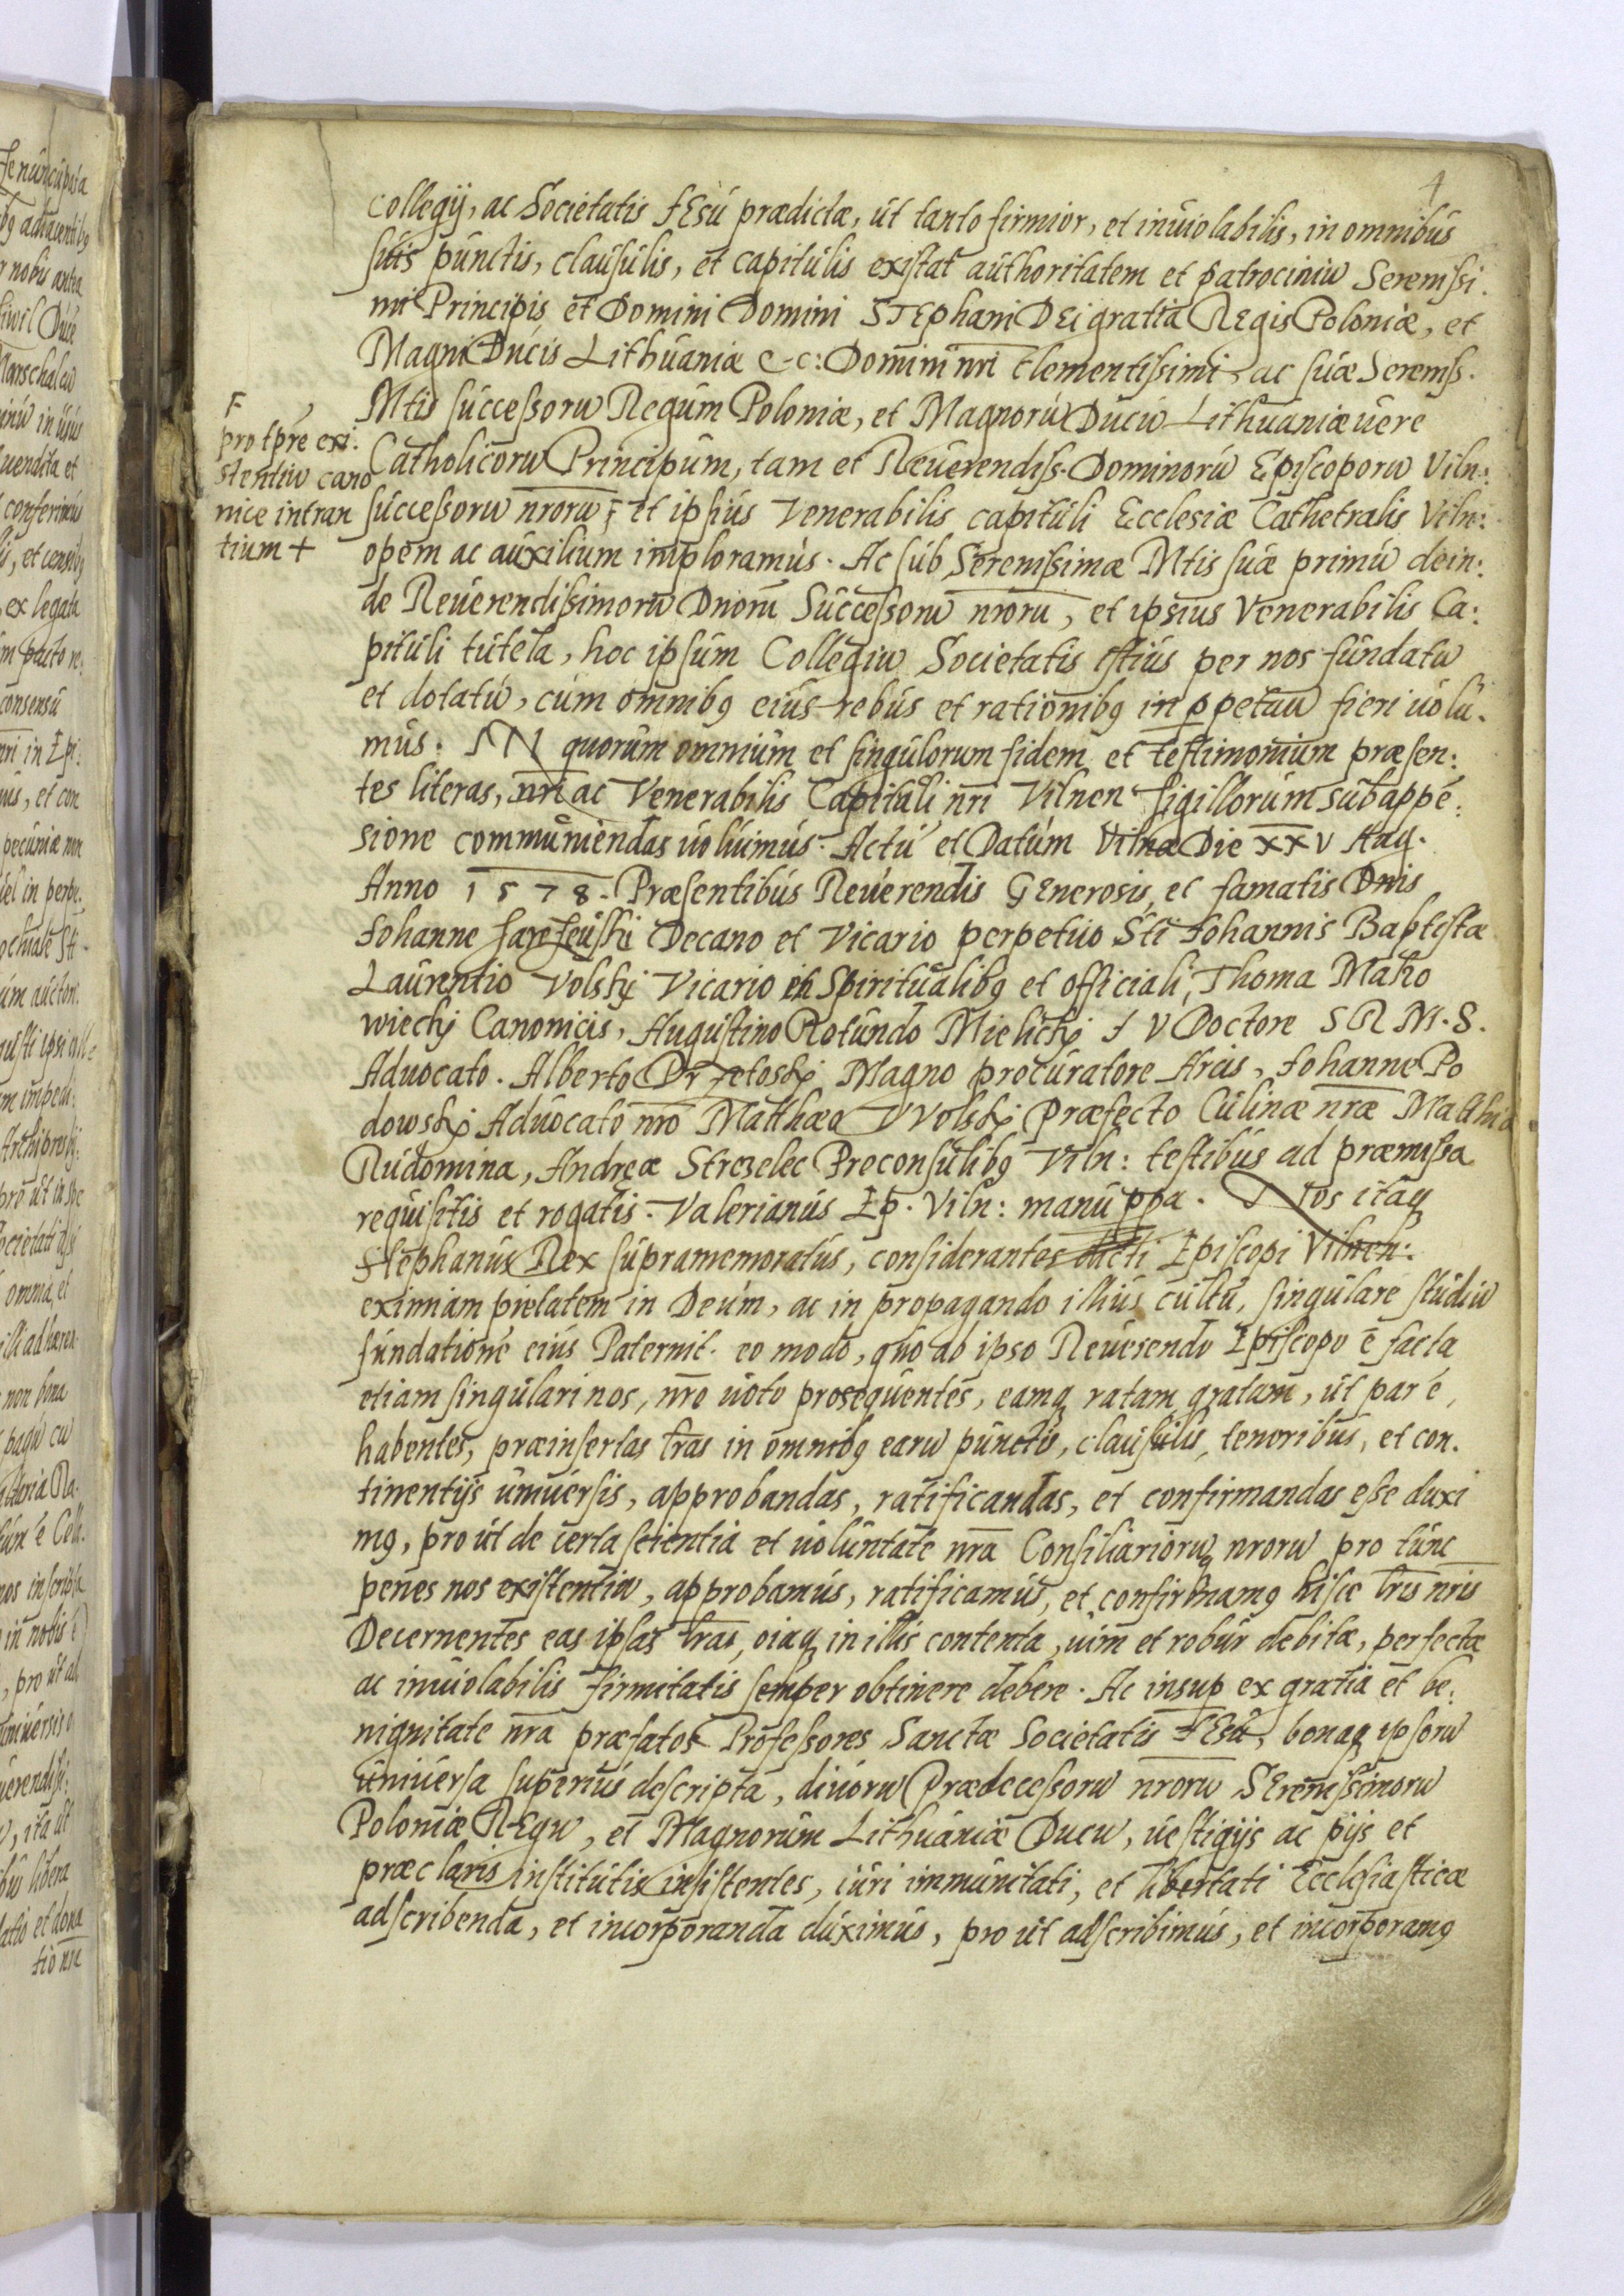 4
collegij, ac Societatis IEsu prædictæ, ut tanto firmior, et inuiolabilis, in omnibus
suis punctis, clausulis, et capitulis existat authoritatem et patrociniū Serenissi.
mi Principis et Domini Domini STEphani DEi gratia REgis Poloniæ, et
Magni Ducis Lithuaniæ &c: Domini nr̄i Clementissimi, ac suæ Sereniss.
Mtis successorū Regum Poloniæ, et Magnorū Ducū Lithuaniæ uere
Catholicorū Principum, tam et Reuerendiss. Dominorū Episcoporū Viln:
successorū nr̄orū F et ipsius Venerabilis capituli Ecclesiæ Cathetralis Viln:
opem ac auxilium imploramus. Ac sub Serenissimæ Mtis suæ primū dein:
de Reuerendissimorū Dnorū Successorū nr̄orū, et ipsius Venerabilis Ca:
pituli tutela, hoc ipsum Collegiū Societatis istius per nos fundatū
et dotatū, cum omnibꝯ eius rebus et rationibꝯ in ꝑpetuū fieri uolu.
mus. IN quorum omnium et singulorum fidem et testimonium præsen:
tes literas, nr̄i ac Venerabilis Capituli nr̄i Vilnen sigillorum subappē:
sione communiendas uoluimus. Actū et Datum Vilnæ Die XXV Aug.
Anno 1578. Præsentibus Reuerendis GEnerosis, et famatis Dnis
Iohanne Decano et Vicario perpetuo Sti Iohannis Baptistæ
Laurentio Volskj Vicario in Spiritualibꝯ et officiali, Thoma Mako
wieckj Canonicis, Augustino Rotundo Mielickj I V Doctore S R M. S.
Aduocato. Alberto Magno procuratore Arcis, Iohanne Po
dowskj Aduocato nr̄o Matthæo VVolskj Præfecto Culinæ nr̄æ Mathia
Rudomina, Andreæ Strozelec Preconsulibꝯ Viln: testibus ad præmissa
requisitis et rogatis. Valerianus Ep. Viln: manu ꝓpa. Nos itaq
Stephanus Rex supramemoratus, considerantes dicti Episcopi Vilnen:
eximiam pietatem in Deum, ac in propagando illius cultu, singularē studiū
fundationē eius Paternit. eo modo, quo ab ipso Reuerendo Episcopo ē facta
etiam singulari nos, nr̄o uoto prosequentes, eamq ratam gratam, ut par ē,
habentes, præinsertas lr̄as in omnibꝯ earū punctis, clausulis, tenoribus, et con.
tinentijs uniuersis, approbandas, ratificandas, et confirmandas esse duxi
mꝯ, pro ut de certa scientia et uoluntate nr̄a Consiliariorūq nr̄orū pro tunc
penes nos existentiū, approbamus, ratificamus, et confirmamꝯ hisce lr̄is nr̄is
Decernentes eas ipsas lr̄as, oīaq in illis contenta, uim et robur debitæ, perfectæ
ac inuiolabilis firmitatis semper obtinere debere. Ac insup ex gratia et be:
nignitate nr̄a præfatos Professores Sanctæ Societatis IEsu, bonaq ipsorū
uniuersa superius descripta, diuorū Prædecessorū nr̄orū SErenissimorū
Poloniæ REgū, et Magnorum Lithuaniæ Ducū, uestigijs ac pijs et
præclaris institutis insistentes, iuri immunitati, et libertati Ecclesiasticæ
adscribenda, et incorporanda duximus, pro ut adscribimus, et incorporamꝯ
F
pro tp̄re exi:
stentiū cano
nice intran
tium +